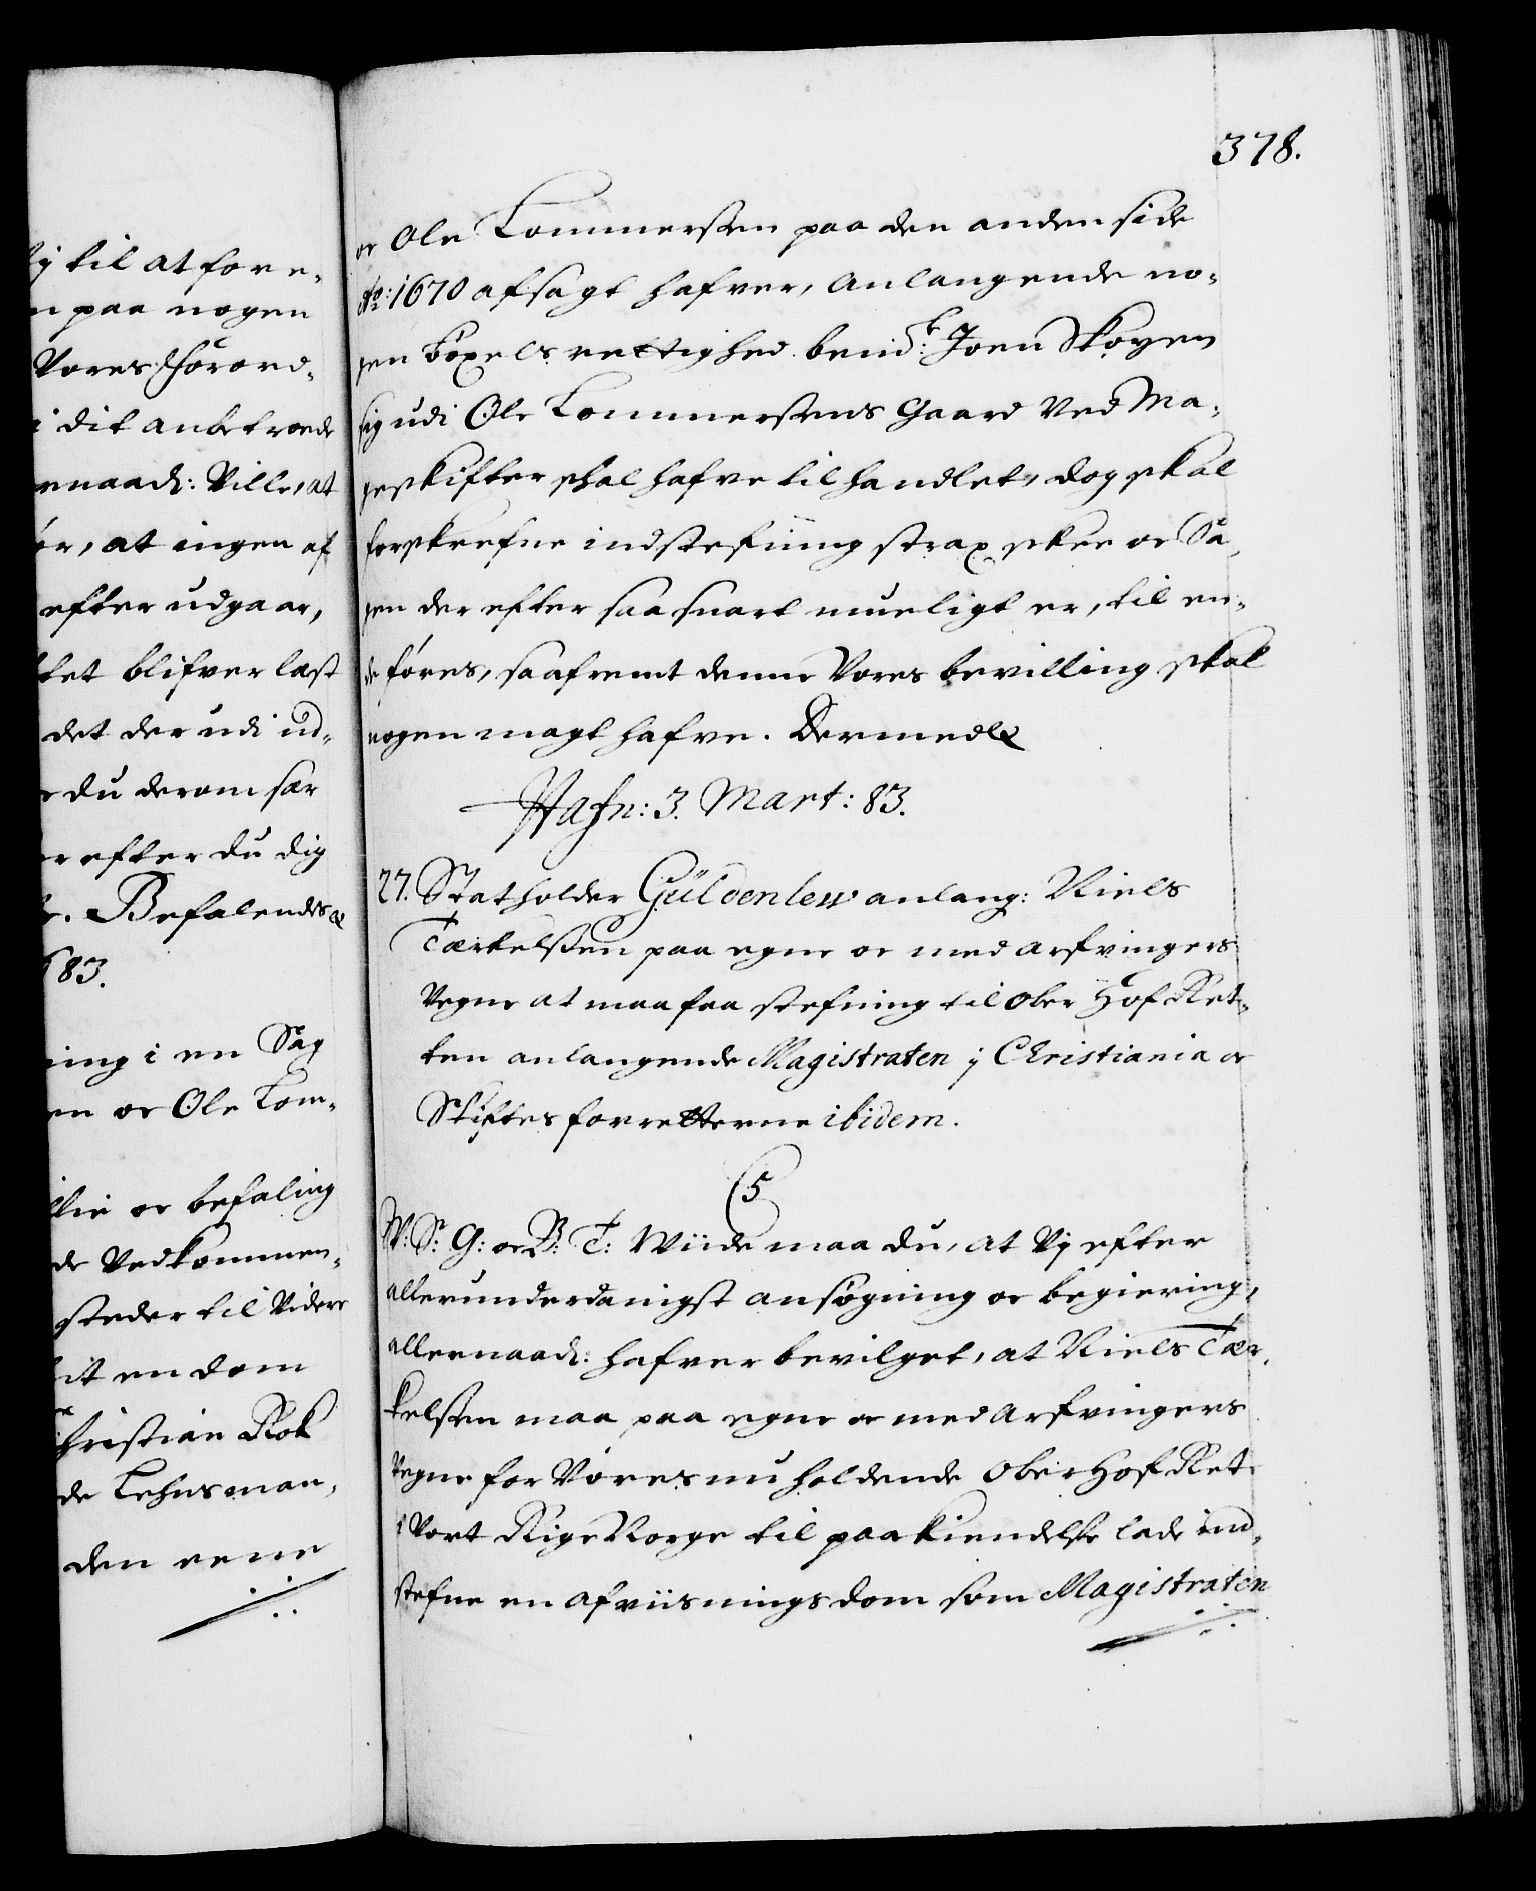 378.
ij til at fore-
n paa nogen
Vores Forord-
i dit anbetroede
rnaad: Ville, at
ør, at ingen af
efter udgaar,
ket blifver læst
det der udi ud-
du derom sær
r efter du dig
Befalendis &
83.
ning i en Sag
en oc Ole Tom-
llie oc befaling
de Vedkommen-
steder til Videre
it en dom
hristian Kok
de Lehnsman,
den eene
oc Ole Tommerssen paa den anden side
Ao: 1670 afsagt hafver, anlangende no-
gen böxels rettighed bemt: Joen Skoyen
sig udi Ole Tommerssens Gaard Ved Ma-
geskifter skal hafve tilhandlet, dog skal
forskrefne indstefning strax skee oc Sa-
gen der efter saa snart mueligt er, til en-
de föres, saafremt denne Vores bevilling skal
nogen magt hafve. Dermed &
Hafn: 3. Mart: 83.
27. Statholder Güldenlew anlang: Niels
Tærkelssen paa egne oc med arfvingers
Vegne at maa faa stefning til Ober Hof Ret-
ten anlangende Magistraten j Christiania oc
Skiftes forretterne ibidem.
C5
W: S: G: oc B: T: Wiide maa du, at Vij efter
allerunderdanigst ansögning oc begiering,
allernaad: hafver bevilget, at Niels Tær-
kelssen maa paa egne oc med arfvingers
Vegne for Vores nu holdende Ober Hof Ret
i Vort Rige Norge til paakiendelse lade ind-
stefne en afviisnings dom som Magistraten